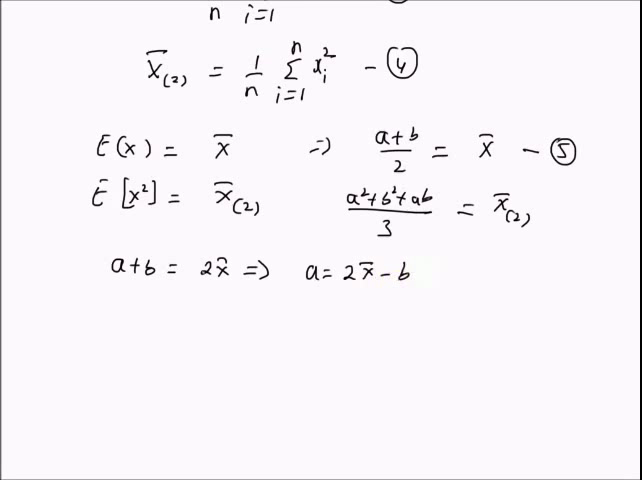 n i=1
X̄(2) = 1/n Σ(i=1 to n) xᵢ² - ④
E(x) = x̄ => (a+b)/2 = x̄ - ⑤
E[x²] = x̄(2) (a²+b²+ab)/3 = x̄(2)
a+b = 2x̄ => a = 2x̄ - b